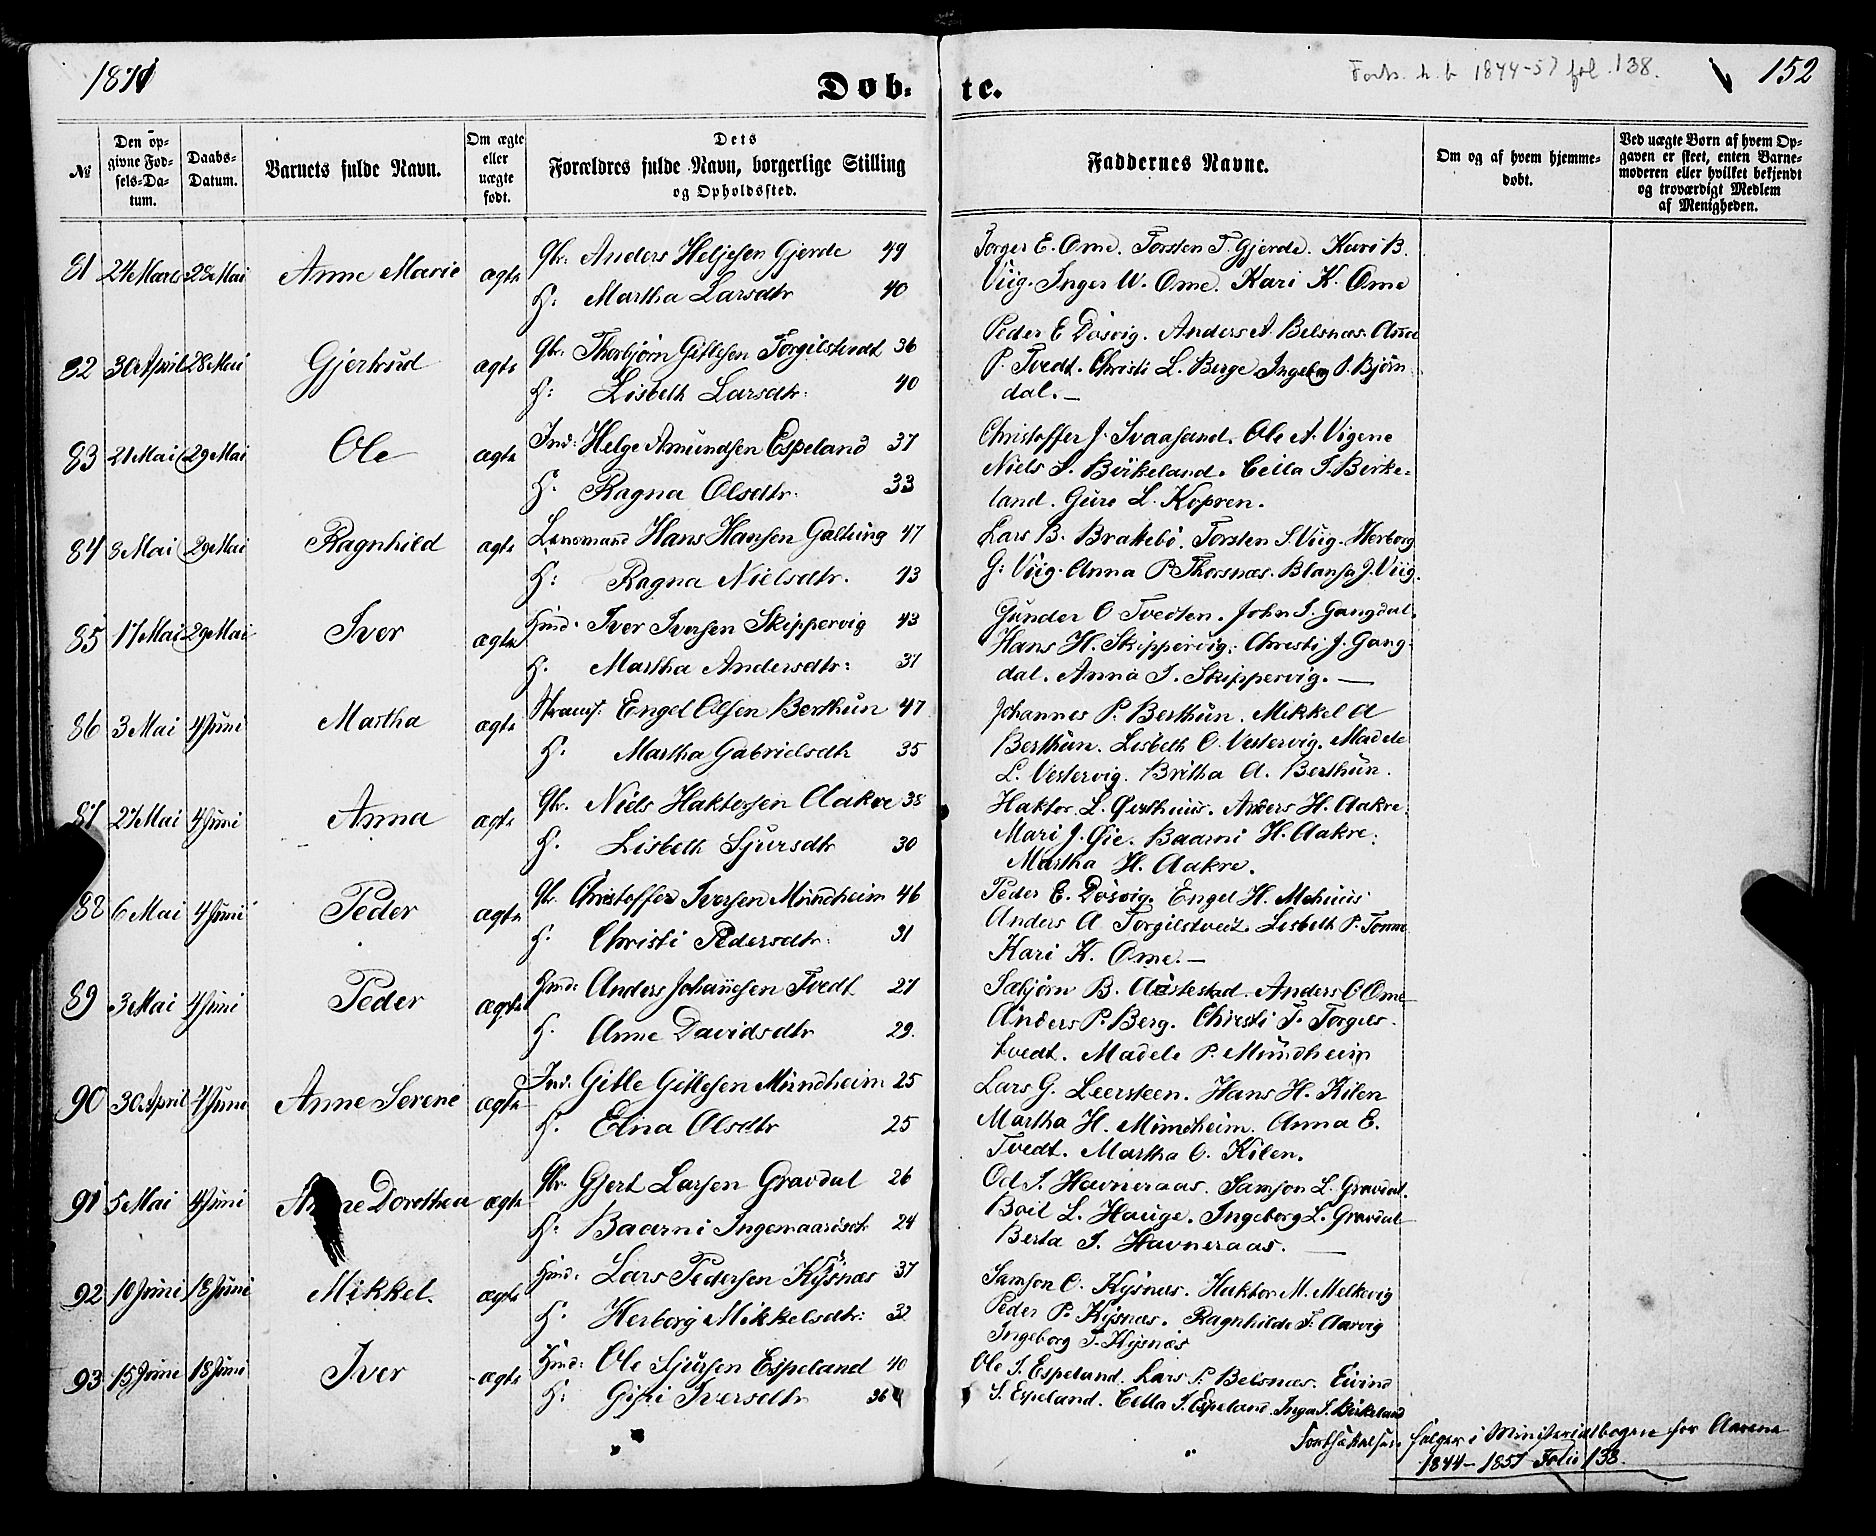 1871
Døb-
te.
Forts. h. b. 1844-57 fol. 138.
152
№
Den op-
givne Fød-
sels-Da-
tum.
Daabs-
Datum.
Barnets fulde Navn.
Om ægte
eller
uægte
født.
Dets
Forældres fulde Navn, borgerlige Stilling
og Opholdssted.
Faddernes Navne.
Om og af hvem hjemme-
døbt.
Ved uægte Børn af hvem Op-
gaven er skeet, enten Barne-
moderen eller hvilket bekjendt
og troværdigt Medlem
af Menigheden.
81 24 Marts 28 Mai Anne Marie ægte Gbr. Anders Heljesen Gjerde 49
H: Martha Larsdtr 40
Torger E. Ome. Torsten T. Gjerde. Kari B.
Viig. Inger W. Ome. Kari K. Ome
82 30 April 28 Mai Gjertrud ægte Gbr. Thorbjørn Gitlesen Torgilstvedt 36
H: Lisbeth Larsdtr. 40
Peder E Døsvig. Anders A. Belsnæs. Anna
P. Tvedt. Christi L. Berge Ingebg P. Bjørn-
dal. —
83 21 Mai 29 Mai Ole ægte Ind: Helge Amundsen Espeland 37
H: Ragna Olsdtr. 33
Christoffer J. Svaasand. Ole A. Vigene
Niels S. Birkeland. Cella I. Birke-
land. Guro L. Kopren.
84 3 Mai 29 Mai Ragnhild ægte Lensmand Hans Hansen Galtung 47
H: Ragna Nielsdtr. 43
Lars B. Brattebø. Torsten S. Viig. Herborg
G. Viig. Anna P. Thorsnæs. Blansa J. Viig.
85 17 Mai 29 Mai Iver ægte Hmd. Iver Iversen Skippervig 43
H. Martha Andersdtr: 37
Gunder O Tvedten. John I. Gangdal.
Hans H. Skippervig. Christi J. Gang-
dal. Anna I. Skippervig. —
86 3 Mai 4 Juni Martha ægte Engel Olsen Berthun 47
H: Martha Gabrielsdtr 35
Johannes P. Berthun. Mikkel A
Berthun. Lisbeth O. Vestervig. Madele
L. Vestervig. Britha A. Berthun.
87 27 Mai 4 Juni Anna ægte Gbr. Niels Haktorsen Aakre 38
H. Lisbeth Sjursdtr 30
Haktor L. Østhuus. Anders H. Aakre.
Mari J. Øie. Baarni H. Aakre.
Martha H. Aakre.
88 6 Mai 4 Juni Peder ægte Gb. Christoffer Iversen Mundheim 46
H. Christi Pedersdtr. 31
Peder E. Døsvig. Engel H. Mehuus
Anders A Torgilstveit Lisbeth P. Tonne
Kari K. Ome. —
89 3 Mai 4 Juni Peder ægte Hmd: Anders Johannesen Tvedt 27
H. Anne Davidsdtr 29.
Sabjørn B. Aastestad. Anders O Ome
Anders P. Berg. Christi T. Torgils-
tvedt. Madele P. Mundheim
90 30 April 4 Juni Anne Serene ægte Ind. Gitle Gitlesen Mundheim 25
H. Elina Olsdtr 25
Lars G. Leersteen. Hans H. Kilen
Martha H. Mundheim. Anna E.
Tvedt. Martha O. Kilen.
91 5 Mai 4 Juni Anne Dorothea ægte Gbr Gjert Larsen Gravdal 26
H. Baarni Ingemaarsdtr 24
Od I. Havneraas. Samson L. Gravdal.
Boil L. Hauge. Ingeborg L. Gravdal
Berta I. Havneraas. —
92 10 Juni 18 Juni Mikkel. ægte Hmd. Lars Pedersen Kysnæs 37
H. Herborg Mikkelsdtr: 32
Samson O. Kysnæs. Haktor M. Melkevig
Peder P. Kysnæs. Ragnhilde T. Aarvig
Ingeborg T. Kysnæs
93 15 Juni 18 Juni Iver ægte Hmd: Ole Sjursen Espeland 40
H: Gjøri Iversdtr 36
Ole I. Espeland. Lars P. Belsnæs. Eivind
S. Espeland. Cella I. Espeland. Inga S. Birkeland
Fortsættelsen følger i Ministerialbogen for Aarene
1844-1857 Folio 138.